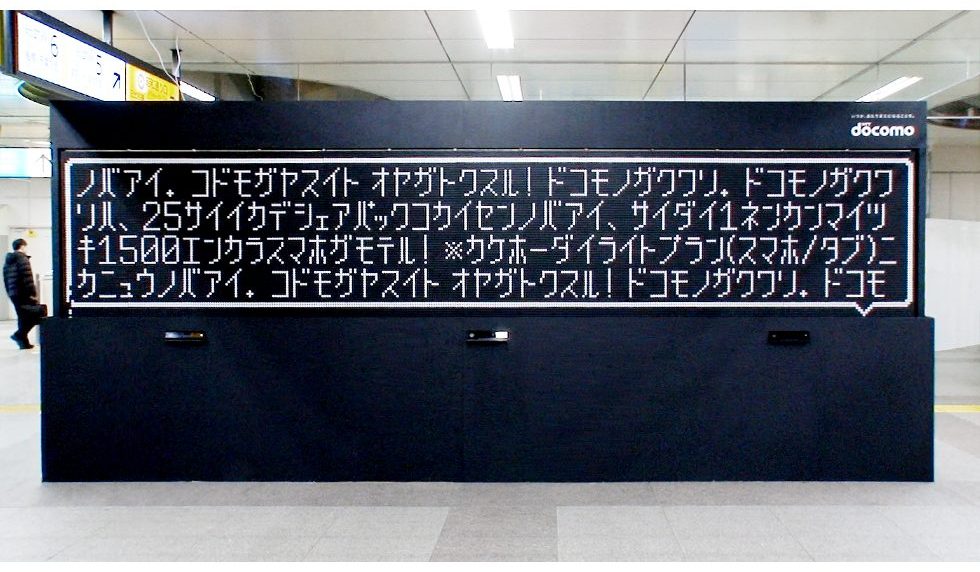 6
5
いつか、あたりまえになることを。
döcomo
ノバアイ。コドモガヤスイト オヤガトクスル!ドコモノガクワリ。ドコモノガクワ
リハ、25サイイカデシェアパックコカイセンノバアイ、サイダイ1ネンカンマイツ
キ1500エンカラスマホガモテル!※カケホーダイライトプラン(スマホ/タブ)ニ
カニュウノバアイ。コドモガヤスイト オヤガトクスル!ドコモノガクワリ。ドコモ